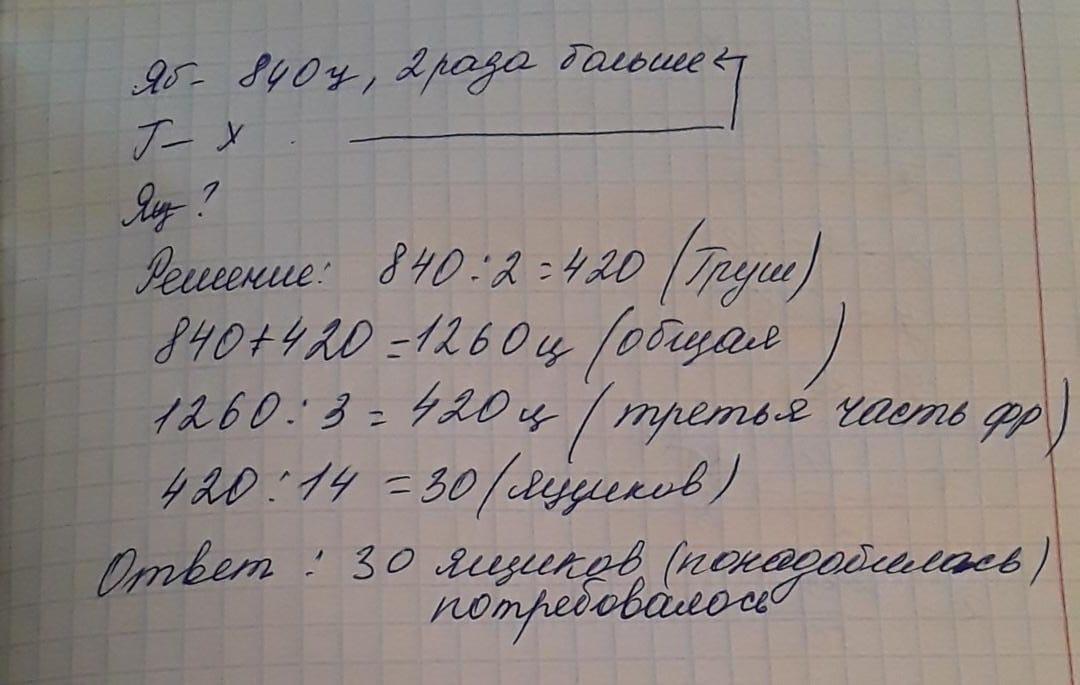 Яб- 840ц, 2 раза больше
Г- х
Ящ-?
Решение: 840:2=420 (Груш)
840+420=1260ц (общая )
1260:3=420ц (третья часть фр)
420:14=30 (ящиков)
Ответ: 30 ящиков (понадобилась)
потребовалось